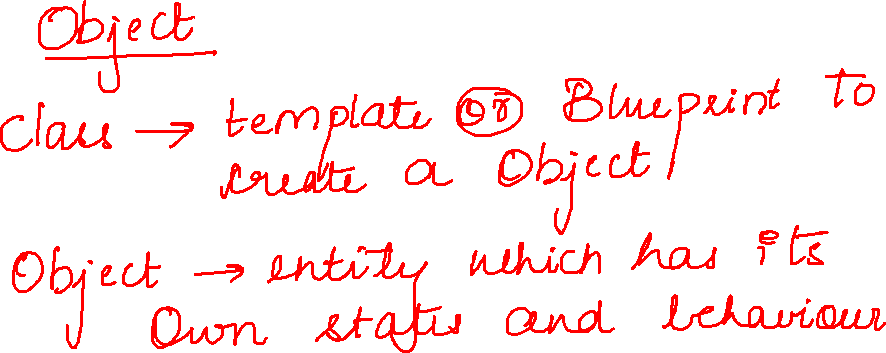 Object
Class → template or Blueprint To
create a Object
Object → entity which has its
Own status and behaviour